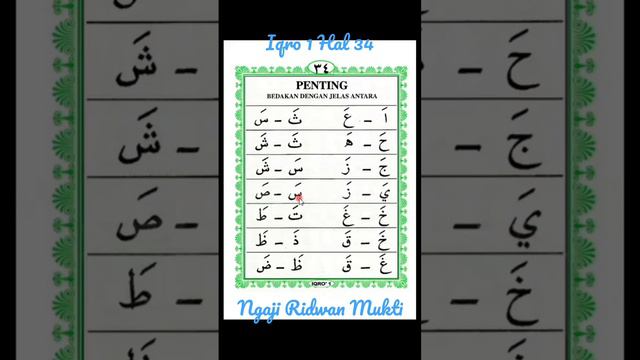 Iqro 1 Hal 34
٣٤
PENTING
BEDAKAN DENGAN JELAS ANTARA
اَ – عَ ثَ – سَ
حَ – هَ ثَ – شَ
جَ – زَ سَ – شَ
يَ – زَ سَ – صَ
خَ – غَ تَ – طَ
خَ – قَ ذَ – ظَ
غَ – قَ ظَ – ضَ
IQRO' 1
Ngaji Ridwan Mukti